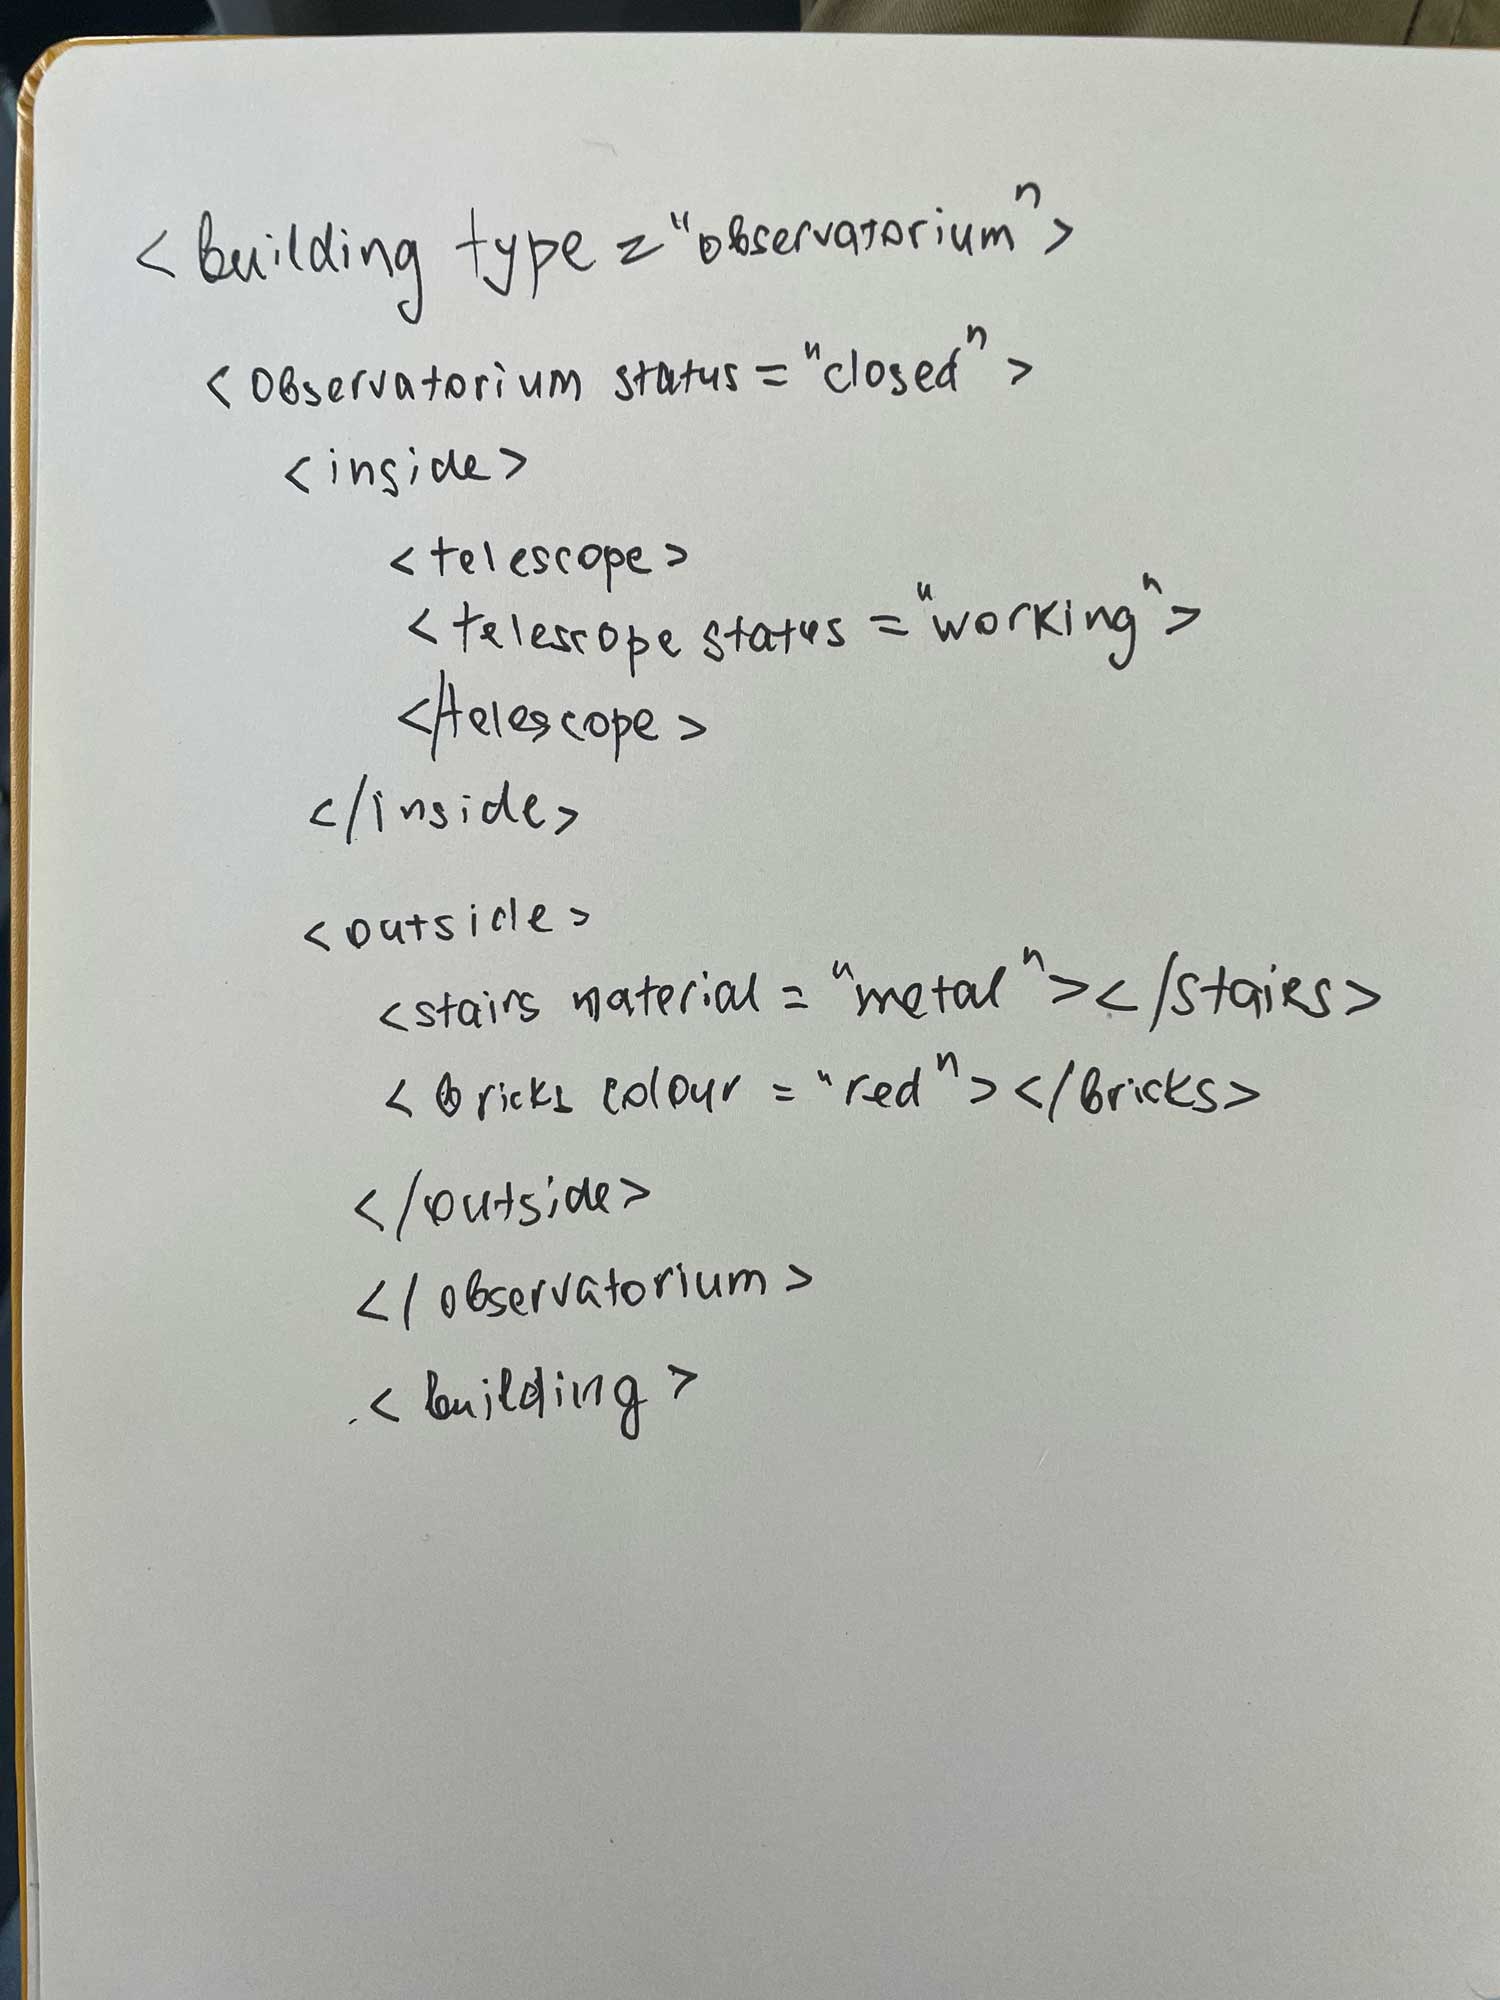 <building type="observatorium">
<observatorium status="closed">
<inside>
<telescope>
<telescope status="working">
</telescope>
</inside>
<outside>
<stairs material="metal"></stairs>
<bricks colour="red"></bricks>
</outside>
</observatorium>
<building>